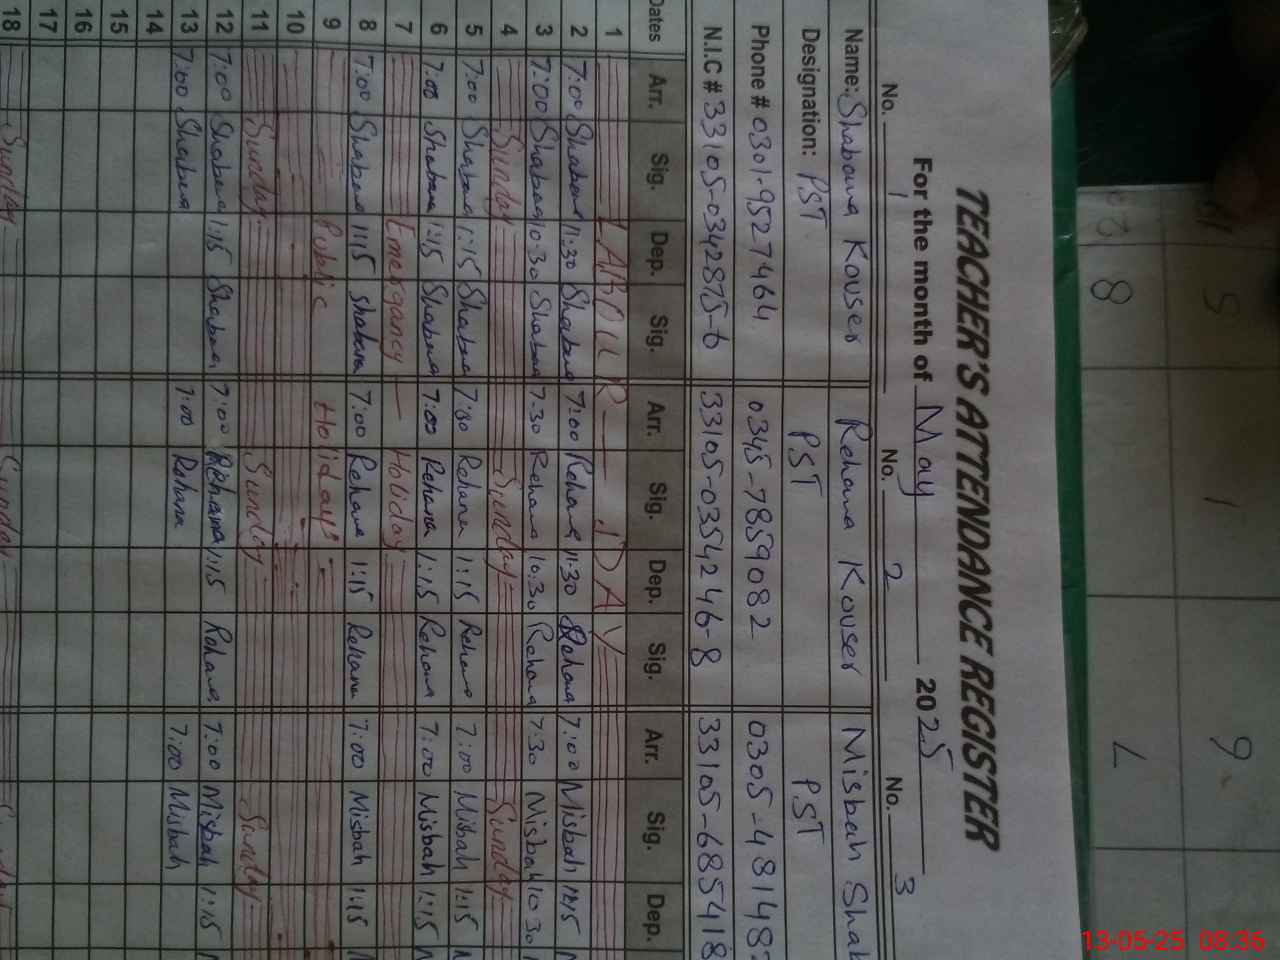 TEACHER'S ATTENDANCE REGISTER
For the month of May 2025
No. 1 No. 2 No. 3
Name: Shabana Kouser Rehana Kouser Misbah Shab
Designation: PST PST PST
Phone # 0301-9527464 0345-7859082 0305-43148
N.I.C # 33105-0342875-6 33105-0354246-8 33105-685418
Dates Arr. Sig. Dep. Sig. Arr. Sig. Dep. Sig. Arr. Sig. Dep.
1 LABOUR DAY
2 7:00 Shabana 11:30 Shabana 7:00 Rehana 11:30 Rehana 7:00 Misbah 12:15
3 7:00 Shabana 10:30 Shabana 7:30 Rehana 10:30 Rehana 7:30 Misbah 10:30
4 Sunday Sunday Sunday
5 7:00 Shabana 1:15 Shabana 7:00 Rehana 1:15 Rehana 7:00 Misbah 1:15
6 7:00 Shabana 1:15 Shabana 7:00 Rehana 1:15 Rehana 7:00 Misbah 1:15
7 Emergancy Holiday
8 7:00 Shabana 1:15 Shabana 7:00 Rehana 1:15 Rehana 7:00 Misbah 1:15
9 Public Holidays
10
11 Sunday Sunday Sunday
12 7:00 Shabana 1:15 Shabana 7:00 Rehana 1:15 Rehana 7:00 Misbah 1:15
13 7:00 Shabana 7:00 Rehana 7:00 Misbah
14
15
16
17
18 Sunday Sunday
13-05-25 08:36